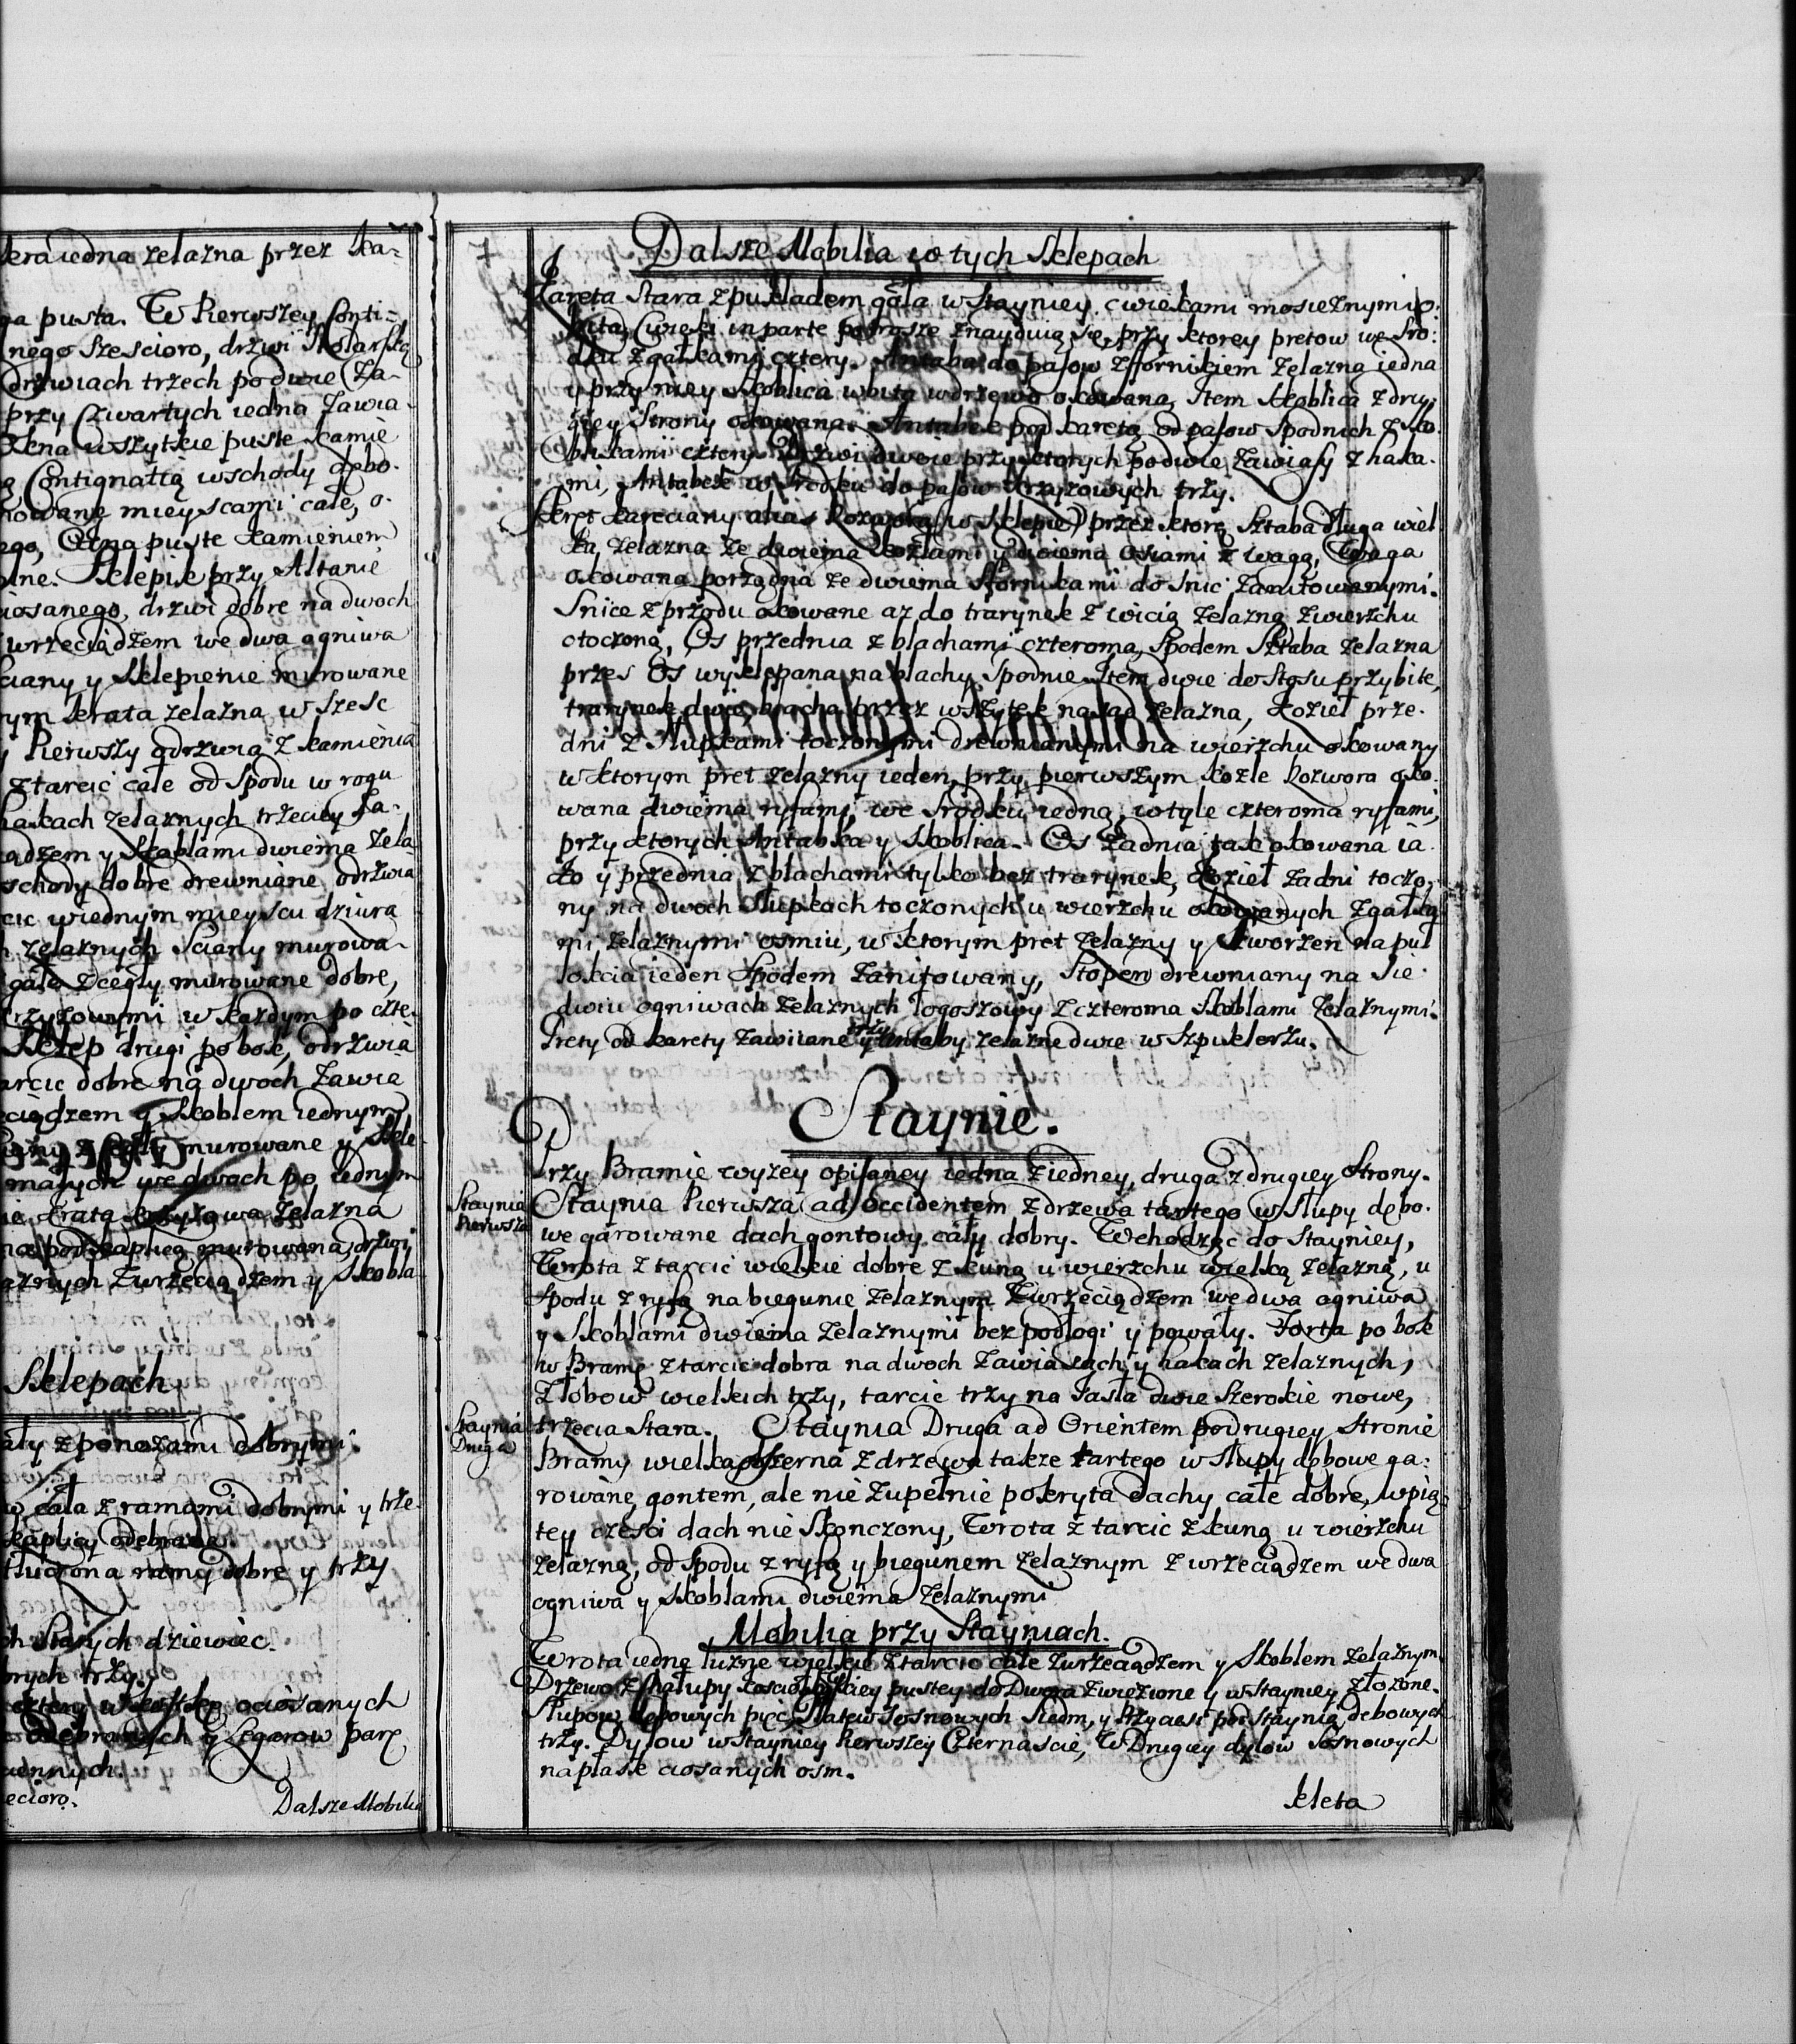 kera iedna zelazna przez ka-
ga pusta. W Pierwszey Conti-
nego Szescioro, drzwi Stolarską
drzwiach trzech po dwie Za-
przy Czwartych iedna Zawia-
Okna wszytkie puste kamie
Contignattą wschody dębo-
mowane mieyscami całe, o-
ego, Okna puste kamieniem
olne. Sklepik przy Altanie
ciosanego, drzwi dobre na dwoch
wrzeciądzem we dwa ogniwa
Sciany y Sklepienie murowane
rym krata zelazna w szesc
Pierwszy odrzwia z kamienia
z tarcic całe od Spodu w rogu
hakach zelaznych trzeciey Za-
ciądzem y Skoblami dwiema Zela
schody dobre drewniane odrzwia
cic wiednym mieyscu dziura
zelaznych Sciany murowa-
gała z cegły murowane dobre,
krzyzowymi w kazdym po czte-
Sklep drugi po bok, odrzwia
tarcic dobre na dwoch Zawia
ciądzem y Skoblem iednym
z cegły murowane y Skle-
małych we dwoch po iednym
krata krzyzowa Zelazna
pod kaplicą murowana, drzwi
aznych Zwrzeciądzem y Skobla
Sklepach
ały z ponozami dobrymi.
cała z ramami dobrymi y trze-
kaplicy odebrana.
tłuczona ramy dobre y trzy
Starych dziewiec.
brych trzy.
cztery ociosanych
Debrowych y Legarow parę
iennych.
ecioro.
Dalsze Mobilia
Dalsze Mobilia w tych Sklepach
Kareta Stara z pukladem gała w Stayniey cwiekami mosieznymi o-
bita, Cwieki in parte potrosze znayduią się, przy ktorey pretow we Sro-
dku z gałkami cztery. Antaba do pasow z ffornikiem zelazna iedna
y przy niey Skoblica wbita w drzewo okowana, Item Skoblica z dru-
giey Strony okowana. Antabek pod karetą od pasow Spodnich z Sko-
blikami cztery. Drzwi dwoie przy ktorych po dwie Zawiasy z haka-
mi, Antabek w Srodku do pasow krzyzowych trzy.
kret kareciany alias Rozworka (w Sklepie) przez ktorę Sztaba długa wiel
ka, zelazna ze dwiema kozłami y dwiema osiami z wagą, Waga
okowana porządna ze dwiema Sfornikami do Snic zanitowanymi.
Snice z przodu okowane az do trarynek z wicią zelazną zwierzchu
otoczoną, Os przednia z blachami czteroma, Spodem Sztaba zelazna
przes Os wyklepana na blachy Spodnie. Item dwie do Stosu przybite,
trarynek dwie blacha przez wszytek nasad zelazna, kozieł prze-
dni z Słupkami toczonymi drewnianymi na wierzchu okowany
w ktorym pret zelazny ieden, przy pierwszym kozle Rozwora oko-
wana dwiema ryfami, we Srodku iedną, w tyle czteroma ryfami,
przy ktorych Antabka y Skoblica. Os Zadnia tak okowana ia-
ko y przednia z blachami tylko bez trarynek, kozieł zadni toczo-
ny na dwoch Słupkach toczonych u wierzchu okowanych z gałka
mi zelaznymi osmiu, w ktorym pret zelazny y Sworzen na puł
łokcia ieden Spodem zanitowany, Stopen drewniany na Sie-
dmiu ogniwach zelaznych Logoszowy z czteroma Skoblami zelaznymi.
Prety od karety zawiiane trzy y Antaby zelazne dwie w Szpiklerzu.
Staynie.
Przy Bramie wyzey opisaney iedna z iedney, druga z drugiey Strony.
Staynia Pierwsza
Staynia Pierwsza ad occidentem z drzewa tartego w Słupy dębo-
we garowane dach gontowy cały dobry. Wchodząc do Stayniey,
Wrota z tarcic wielkie dobre z kuną u wierzchu wielką zelazną, u
Spodu z ryfą na biegunie zelaznym Zwrzeciądzem we dwa ogniwa
y Skoblami dwiema zelaznymi bez podłogi y powały. Forta po bok
w Bramę z tarcic dobra na dwoch Zawiasach y hakach zelaznych,
Złobow wielkich trzy, tarcie trzy na Jasła dwie Szerokie nowe,
trzecia Stara. Staynia Druga ad Orientem po drugiey Stronie
Staynia Druga
Bramy wielka obszerna z drzewa takze tartego w Słupy dębowe ga-
rowane gontem, ale nie zupełnie pokryta dachy całe dobre, w pią-
tey częsci dach nie Skonczony, Wrota z tarcic z kuną u wierzchu
zelazną, od Spodu z ryfą y biegunem zelaznym z wrzeciądzem we dwa
ogniwa y Skoblami dwiema zelaznymi
Mobilia przy Stayniach.
Wrota iedne luzne wielkie z tarcic całe Zwrzeciądzem y Skoblem zelaznym
Drzewo z chałupy pustey do Dworu zwiezione y w Stayniey złozone.
Słupow dębowych pięć, Płatew Sosnowych Siedm, y Przycies pod Staynią dębowych
trzy. Dylow w Stayniey Pierwszey Czternascie, W Drugiey dylow Sosnowych
na płask ciosanych osm.
kleta